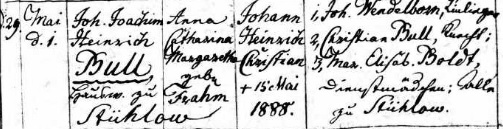 29. Mai Joh. Joachim Anna Johann 1, Joh. Wendelborn,
d. 1. Heinrich Catharina Heinrich 2, Christian Bull, Knecht;
Bull Margaretha Christian 3, Mar. Elisab. Boldt,
zu gebr. + 15 Mai Dienstmädchen; alle
Stühlow Frahm 1888. zu Stühlow.